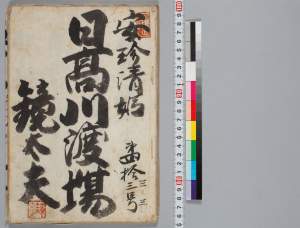 安珍清姫
日高川渡場
第拾三号
鏡太夫